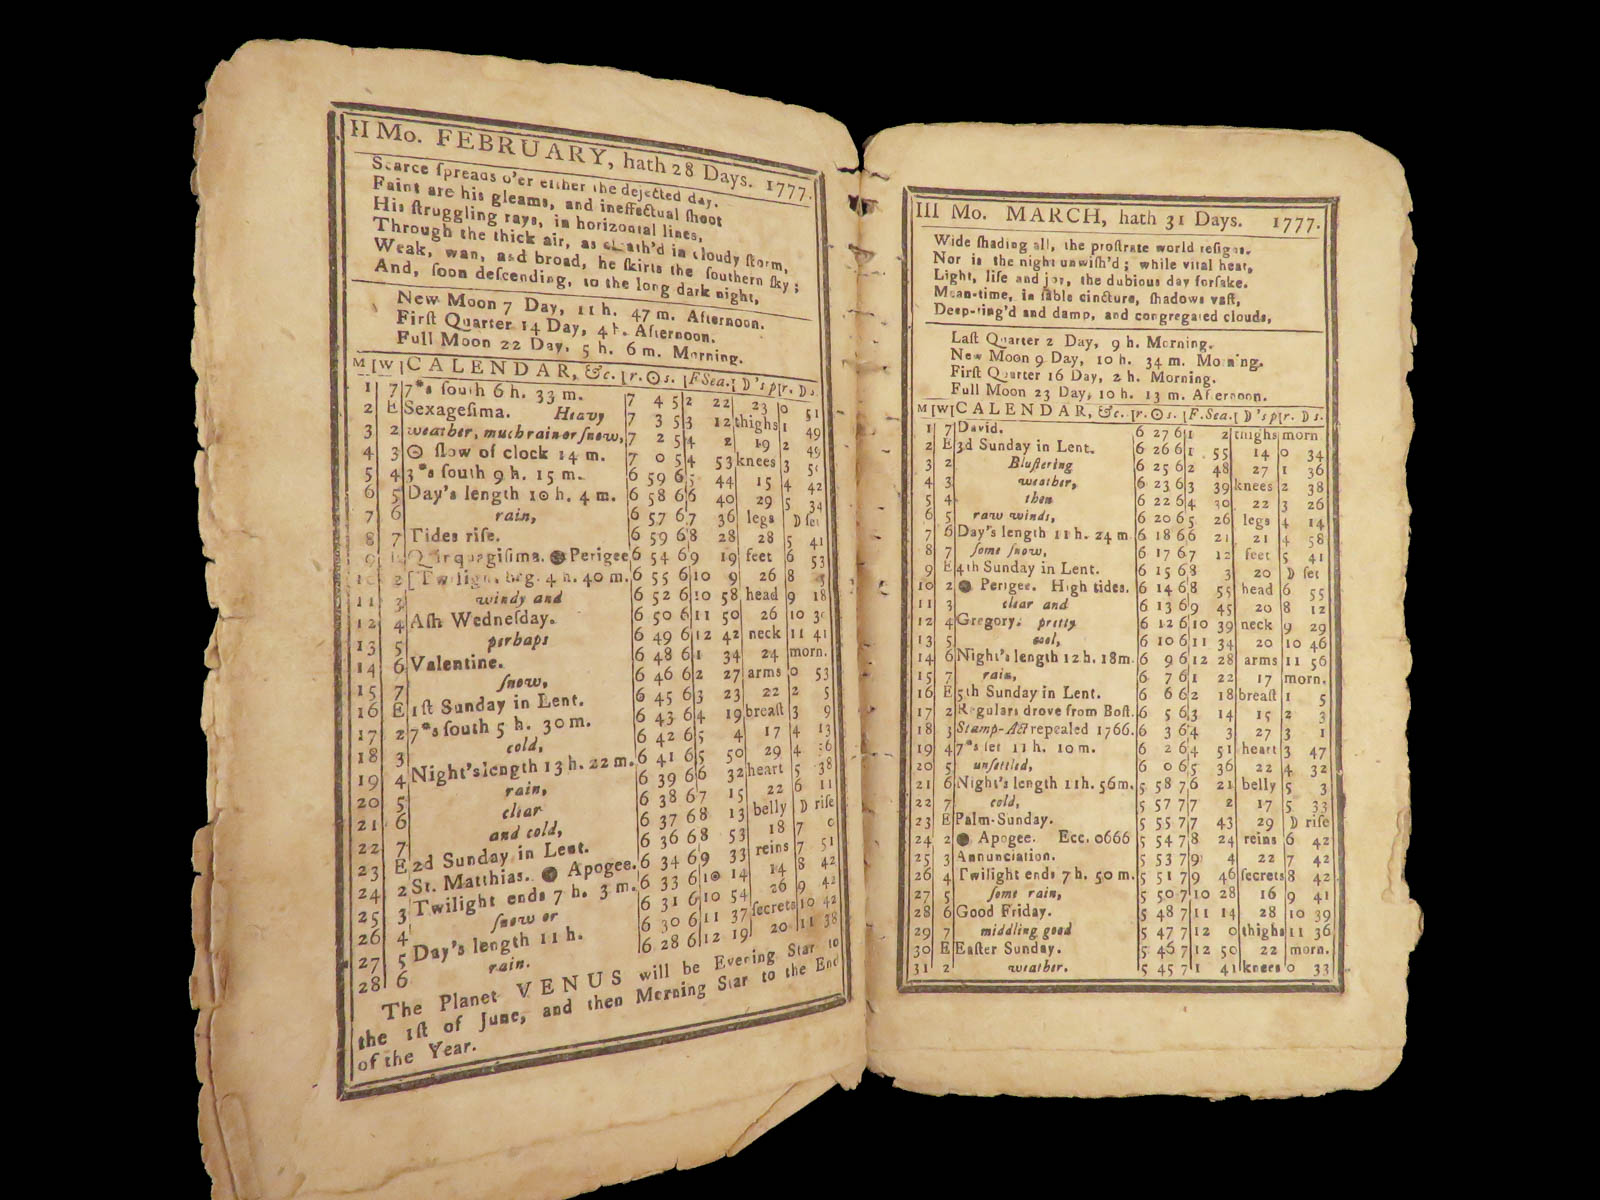 II Mo. FEBRUARY, hath 28 Days. 1777.
Scarce ſpreads o'er either the dejected day.
Faint are his gleams, and ineffectual ſhoot
His ſtruggling rays, in horizontal lines,
Through the thick air, as cloath'd in cloudy ſtorm,
Weak, wan, and broad, he ſkirts the ſouthern ſky;
And, ſoon deſcending, to the long dark night,
New Moon 7 Day, 11 h. 47 m. Afternoon.
Firſt Quarter 14 Day, 4 h. Afternoon.
Full Moon 22 Day, 5 h. 6 m. Morning.
M [W [CALENDAR, &c. [r. ☉ s. [F Sea. [ D's p[r. D s.
1 7 7*s ſouth 6 h. 33 m. 7 4 5 2 22 23 0 51
2 E Sexageſima. Heavy 7 3 5 3 12 thighs 1 49
3 2 weather, much rain or ſnow, 7 2 5 4 2 19 2 49
4 3 ☉ ſlow of clock 14 m. 7 0 5 4 53 knees 3
5 4 3*s ſouth 9 h. 15 m. 6 59 6 5 44 15 4 42
6 5 Day's length 10 h. 4 m. 6 58 6 6 40 29 5 34
7 6 rain, 6 57 6 7 36 legs D ſet
8 7 Tides riſe. 6 59 6 8 28 28 5 41
9 E Quinquagiſima. ● Perigee 6 54 6 9 19 feet 6 53
10 2 [Twilight beg. 4 h. 40 m. 6 55 6 10 9 26 8 5
11 3 windy and 6 52 6 10 58 head 9 18
12 4 Aſh Wedneſday. 6 50 6 11 50 26 10
13 5 perhaps 6 49 6 12 42 neck 11 41
14 6 Valentine. 6 48 6 1 34 24 morn.
15 7 ſnow, 6 46 6 2 27 arms 0 53
16 E 1ſt Sunday in Lent. 6 45 6 3 23 22 2 5
17 2 7*s ſouth 5 h. 30 m. 6 43 6 4 19 breaſt 3 9
18 3 cold, 6 42 6 5 4 17 4 13
19 4 Night's length 13 h. 22 m. 6 41 6 5 50 29 4 56
20 5 rain, 6 39 6 6 32 heart 5 38
21 6 clear 6 38 6 7 15 22 6 11
22 7 and cold, 6 37 6 8 13 belly D riſe
23 E 2d Sunday in Lent. 6 36 6 8 53 18 7 0
24 2 St. Matthias. ● Apogee. 6 34 6 9 33 reins 7 51
25 3 Twilight ends 7 h. 3 m. 6 33 6 10 14 14 8 42
26 4 ſnow or 6 31 6 10 54 26 9 42
27 5 Day's length 11 h. 6 30 6 11 37 ſecrets 10 42
28 6 rain. 6 28 6 12 19 20 11 38
The Planet VENUS will be Evening Star to
the 1ſt of June, and then Morning Star to the End
of the Year.
III Mo. MARCH, hath 31 Days. 1777.
Wide ſhading all, the proſtrate world reſigns.
Nor is the night unwiſh'd; while vital heat,
Light, life and joy, the dubious day forſake.
Mean-time, in ſable cincture, ſhadows vaſt,
Deep-ting'd and damp, and congregated clouds,
Laſt Quarter 2 Day, 9 h. Morning.
New Moon 9 Day, 10 h. 34 m. Morning.
Firſt Quarter 16 Day, 2 h. Morning.
Full Moon 23 Day, 10 h. 13 m. Afternoon.
M [W[CALENDAR, &c.[r. ☉ s. [F. Sea.[ D's p[r. D s.
1 7 David. 6 27 6 1 2 thighs morn
2 E 3d Sunday in Lent. 6 26 6 1 55 14 0 34
3 2 Bluſtering 6 25 6 2 48 27 1 36
4 3 weather, 6 23 6 3 39 knees 2 38
5 4 then 6 22 6 4 30 22 3 26
6 5 raw winds, 6 20 6 5 26 legs 4 14
7 6 Day's length 11 h. 24 m. 6 18 6 6 21 21 4 58
8 7 ſome ſnow, 6 17 6 7 12 feet 5 41
9 E 4th Sunday in Lent. 6 15 6 8 3 20 D ſet
10 2 ● Perigee. High tides. 6 14 6 8 55 head 6 55
11 3 clear and 6 13 6 9 45 20 8 12
12 4 Gregory: pretty 6 12 6 10 39 neck 9 29
13 5 cool, 6 10 6 11 34 20 10 46
14 6 Night's length 12 h. 18 m. 6 9 6 12 28 arms 11 56
15 7 rain, 6 7 6 1 22 17 morn.
16 E 5th Sunday in Lent. 6 6 6 2 18 breaſt 1 5
17 2 Regulars drove from Boſt. 6 5 6 3 14 15 2 3
18 3 Stamp-Act repealed 1766. 6 3 6 4 3 27 3 1
19 4 7*s ſet 11 h. 10 m. 6 2 6 4 51 heart 3 47
20 5 unſettled, 6 0 6 5 36 22 4 32
21 6 Night's length 11h. 56m. 5 58 7 6 21 belly 5 3
22 7 cold, 5 57 7 7 2 17 5 33
23 E Palm-Sunday. 5 55 7 7 43 29 D riſe
24 2 ● Apogee. Ecc. 0666 5 54 7 8 24 reins 6 42
25 3 Annunciation. 5 53 7 9 4 22 7 42
26 4 Twilight ends 7 h. 50 m. 5 51 7 9 46 ſecrets 8 42
27 5 ſome rain, 5 50 7 10 28 16 9 41
28 6 Good Friday. 5 48 7 11 14 28 10 39
29 7 middling good 5 47 7 12 0 thighs 11 36
30 E Eaſter Sunday. 5 46 7 12 50 22 morn.
31 2 weather. 5 45 7 1 41 knees 0 33